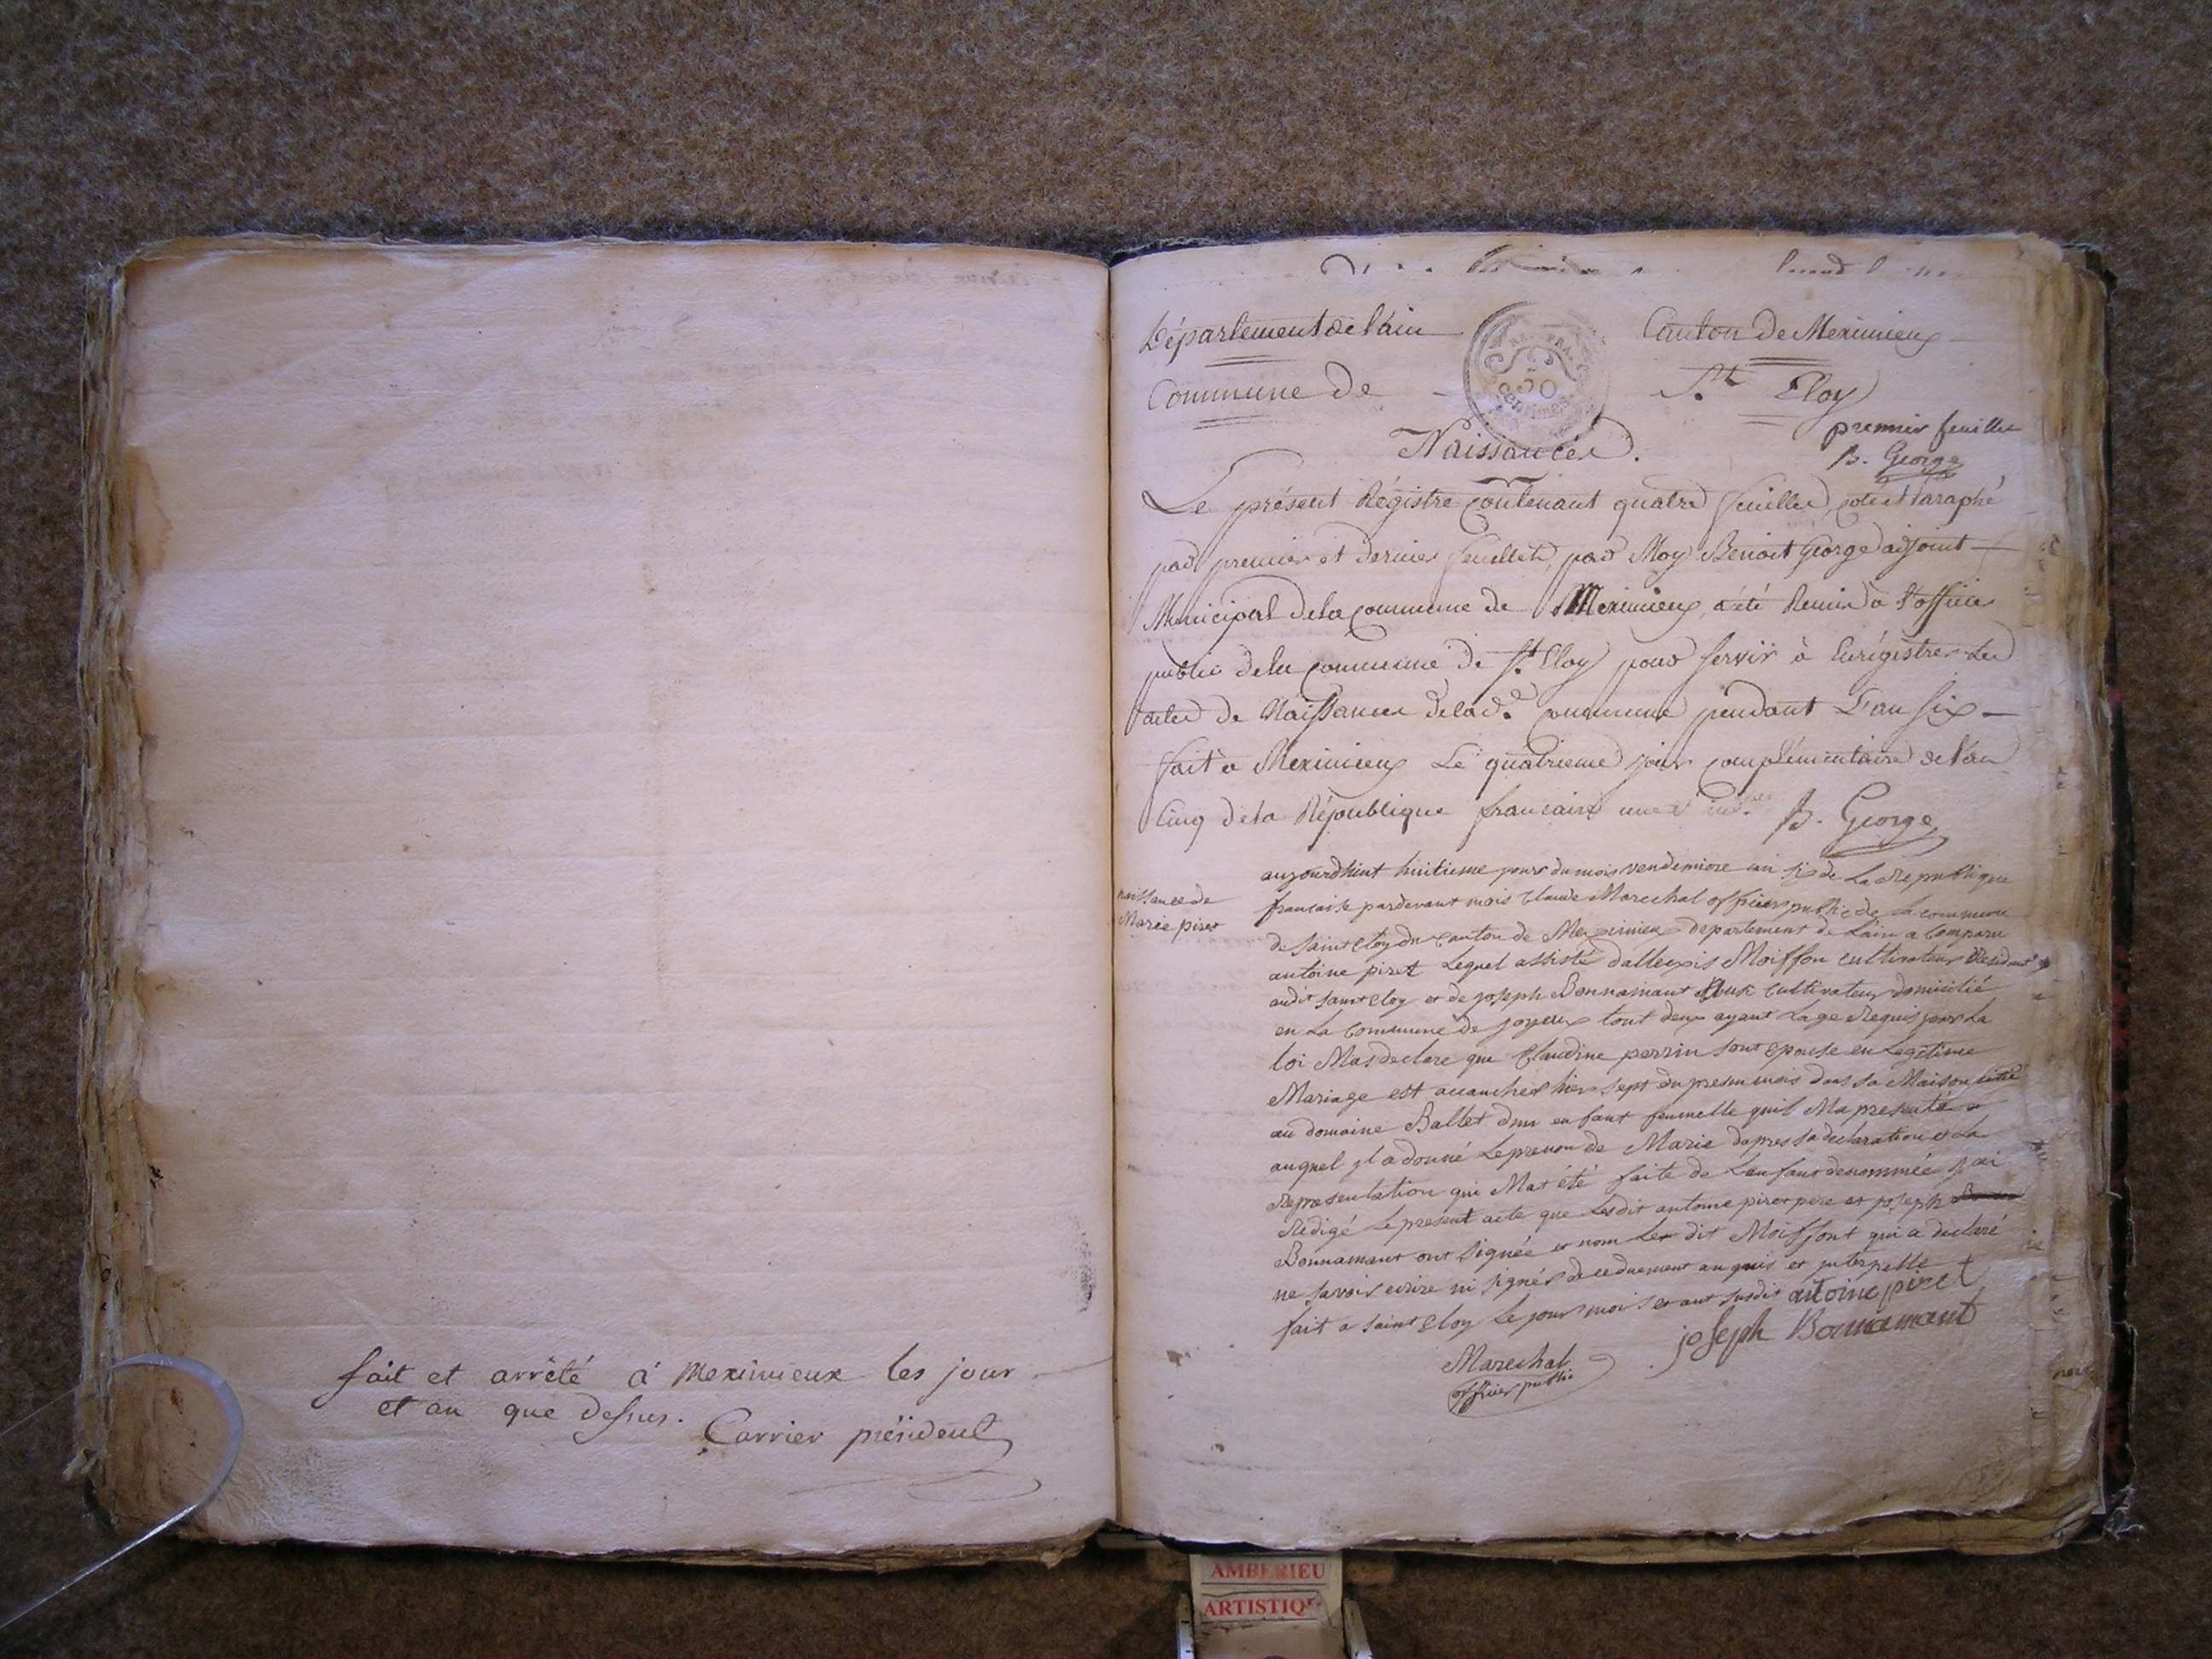 fait et arrêté à Meximieux les jour
et an que dessus.
Carrier président
Département de l'ain
Canton de Meximieux
RE. FRA.
50
Centimes
Commune de
St. Eloy
premier feuillet
B. George
Naissances.
Le présent Régistre contenant quatre feuilles, coté et Paraphé
par premier et dernier feuillet, par Moy Benoit George adjoint
Municipal de la commune de Meximieux, a été Remis à l'officier
public de la commune de St. Eloy pour servir à Enrégistrer Les
actes de Naissances de lad.e commune pendant L'an six
fait à Meximieux Le quatrieme jour complémentaire de l'an
Cinq de la République francaise une et ind. B. George
naissance de
Marie piret
aujourdhuit huitieme jour du mois vendemiere an six de La Republique
francaise pardevant mois Claude Marechal officier public de La commune
de saint Eloy du canton de Meximieux departement de Lain a Comparu
antoine piret Lequel assisté dallexis Moiffon cultivateur Residant
audit saint Eloy et de joseph Bonnamant cultivateur domicilié
en La Commune de joyeux tout deux ayant Lage Requis par La
loi Mas declare que Claudine perrin sont Epouse en Legetime
Mariage est acauchér hier sept du presen mois dans sa Maison sitté
au domaine Ballet dun enfant feumelle quil Ma presenté et
auquel yl a donné Leprenon de Marie dapres sa declaration et La
Representation qui Mat été faite de Lenfant denommée jai
Redigé Le present acte que Lesdit antoine piret pere et joseph
Bonnamant ont signée et nom Le dit Moiffont qui a declaré
ne savoir ecrire ni signér de ce duement anquis et juterpelle
fait a saint Eloy Le jour mois et ant susdis antoine piret
joseph Bonnamant
Marechal
officier public
AMBERIEU
ARTISTIQ